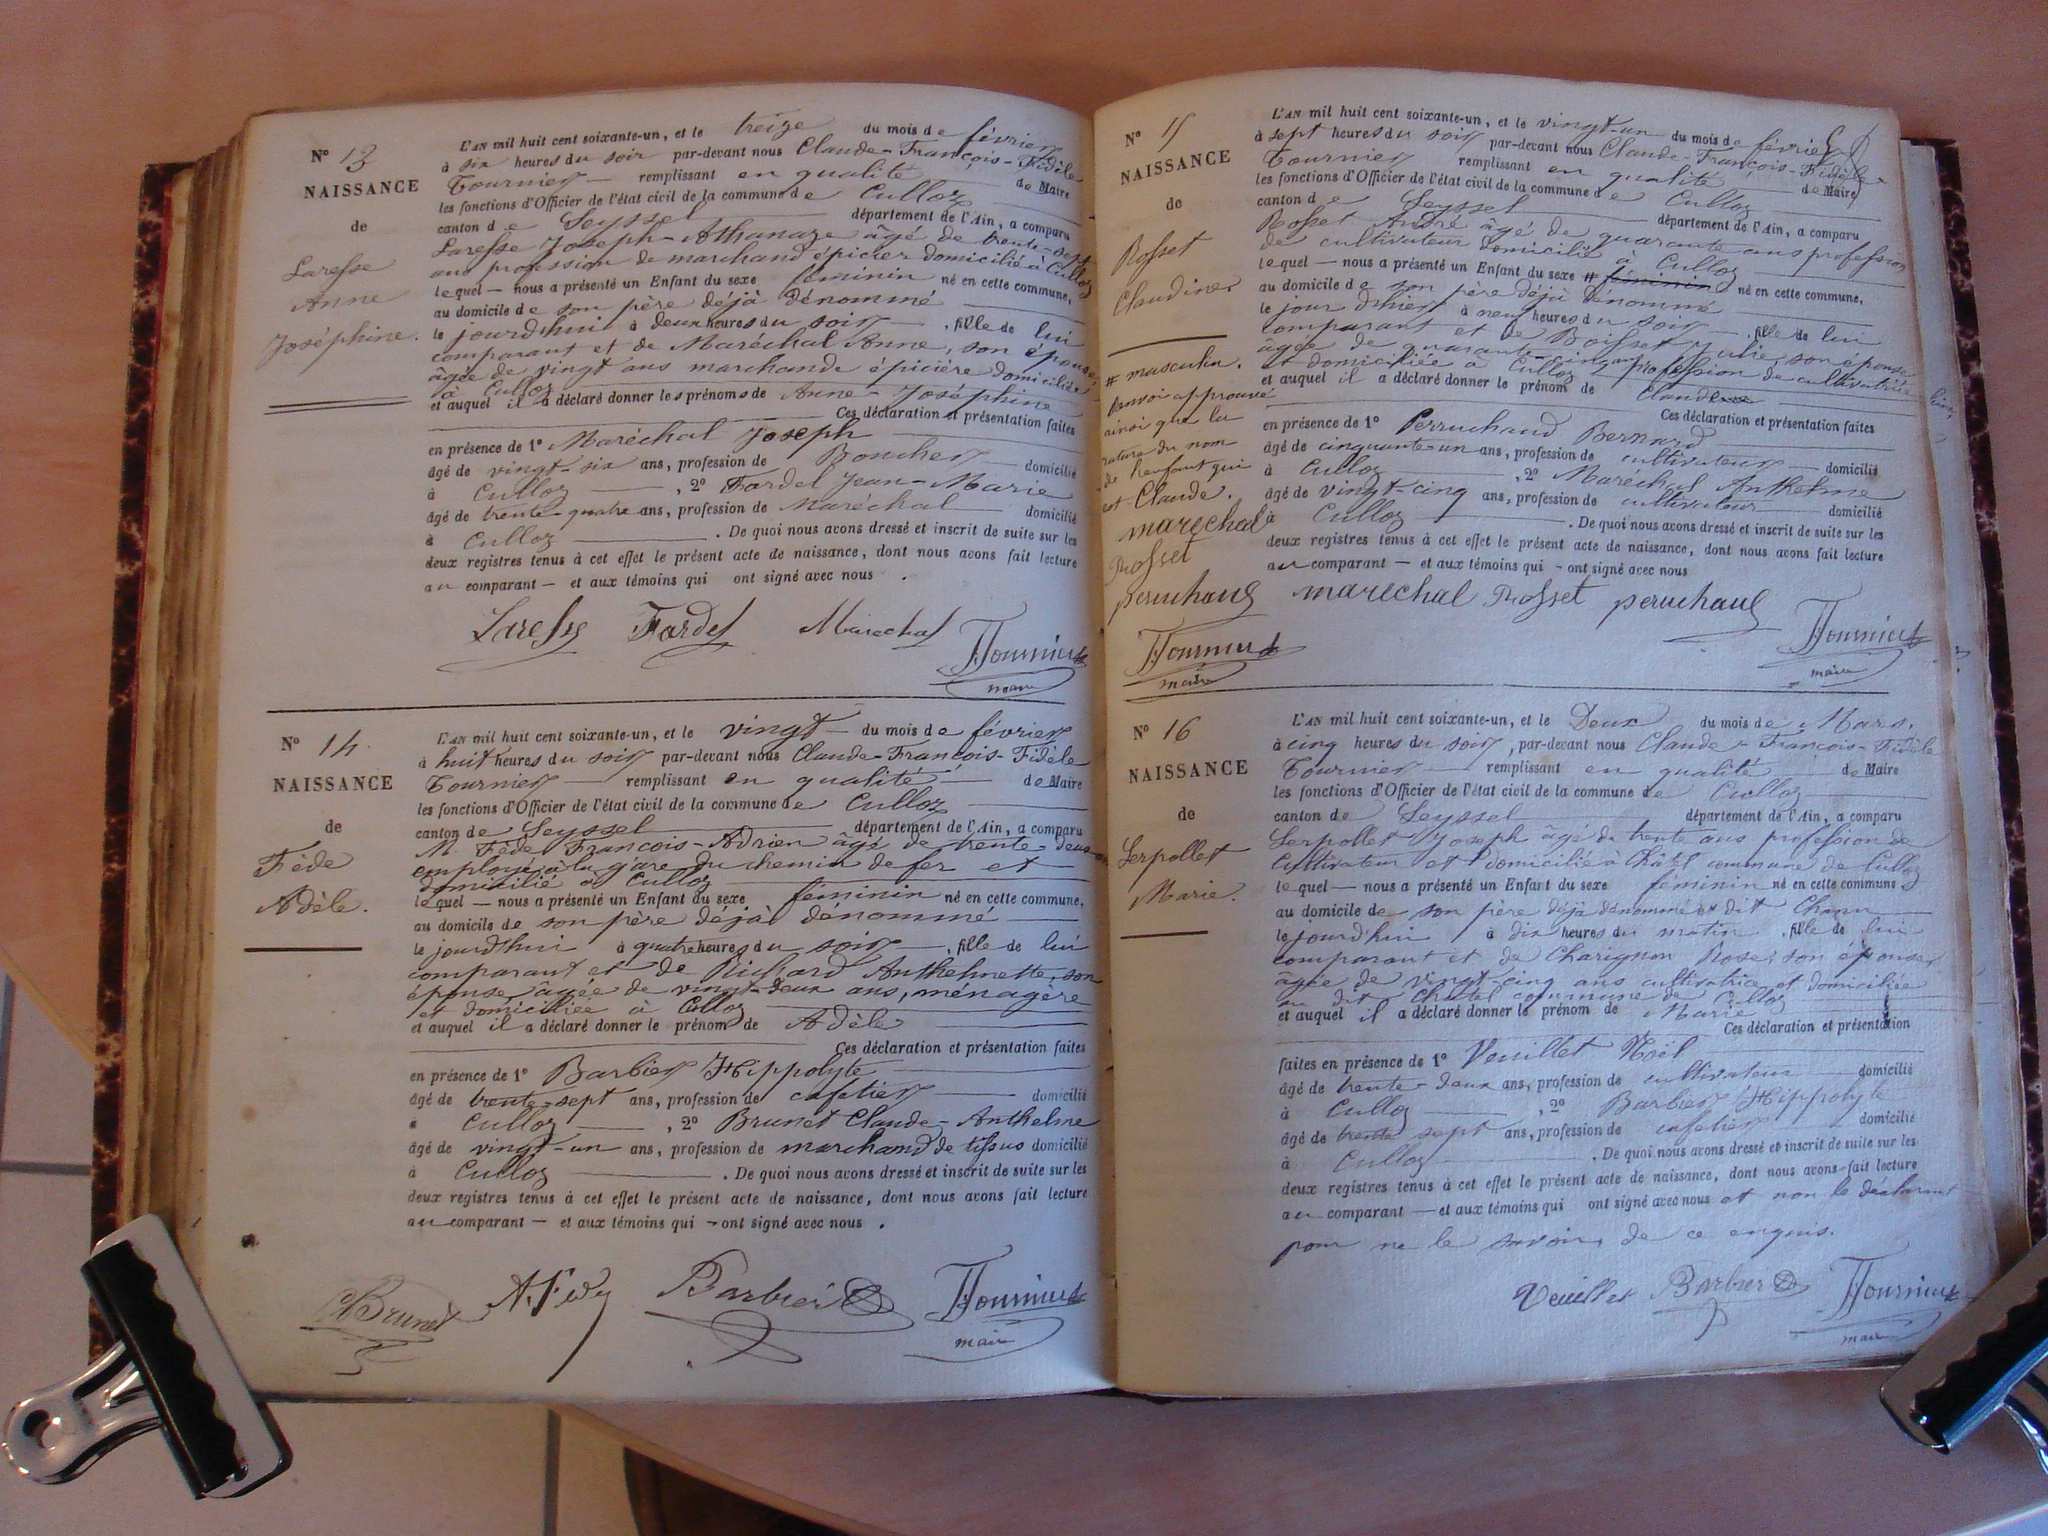 N° 13
NAISSANCE
de
Laresse
Anne
Joséphine.
L'AN mil huit cent soixante-un, et le treize du mois de février
à six heures du soir par-devant nous Claude-François-Fidèle
Tournier remplissant en qualité de Maire
les fonctions d'Officier de l'état civil de la commune de Culloz
canton de Seyssel département de l'Ain, a comparu
Laresse Joseph-Athanaze âgé de trente-sept
ans profession de marchand épicier domicilié à Culloz
lequel — nous a présenté un Enfant du sexe féminin né en cette commune,
au domicile de son père déjà dénommé
le jourd'hui à deux heures du soir, fille de lui
comparant et de Maréchal Anne, son épouse,
âgée de vingt ans marchande épicière domiciliée
à Culloz
et auquel il a déclaré donner les prénoms de Anne-Joséphine
Ces déclaration et présentation faites
en présence de 1° Maréchal Joseph
âgé de vingt-six ans, profession de Boucher domicilié
à Culloz, 2° Fardel Jean-Marie
âgé de trente-quatre ans, profession de Maréchal domicilié
à Culloz. De quoi nous avons dressé et inscrit de suite sur les
deux registres tenus à cet effet le présent acte de naissance, dont nous avons fait lecture
au comparant — et aux témoins qui ont signé avec nous.
Laresse Fardel Maréchal Tournier
maire
N° 14.
NAISSANCE
de
Fède
Adèle.
L'AN mil huit cent soixante-un, et le vingt du mois de février
à huit heures du soir par-devant nous Claude-François-Fidèle
Tournier remplissant en qualité de Maire
les fonctions d'Officier de l'état civil de la commune de Culloz
canton de Seyssel département de l'Ain, a comparu
M. Fède François-Adrien âgé de trente-deux ans
employé à la gare du chemin de fer et
domicilié à Culloz
lequel — nous a présenté un Enfant du sexe féminin né en cette commune,
au domicile de son père déjà dénommé
le jourd'hui à quatre heures du soir, fille de lui
comparant et de Richard Anthelmette, son
épouse, âgée de vingt-deux ans, ménagère
et domiciliée à Culloz
et auquel il a déclaré donner le prénom de Adèle
Ces déclaration et présentation faites
en présence de 1° Barbier Hippolyte
âgé de trente-sept ans, profession de cafetier domicilié
à Culloz, 2° Brunet Claude-Anthelme
âgé de vingt-un ans, profession de marchand de tissus domicilié
à Culloz. De quoi nous avons dressé et inscrit de suite sur les
deux registres tenus à cet effet le présent acte de naissance, dont nous avons fait lecture
au comparant — et aux témoins qui — ont signé avec nous.
Brunet Barbier Tournier
maire
N° 15
NAISSANCE
de
Rosset
Claudine
# masculin.
Renvoi approuvé
ainsi que la
rature du nom
de l'enfant qui
est Claude.
marechal
Rosset
peruchaud
Tournier
maire
L'AN mil huit cent soixante-un, et le vingt-un du mois de février
à sept heures du soir par-devant nous Claude-François-Fidèle
Tournier remplissant en qualité de Maire
les fonctions d'Officier de l'état civil de la commune de Culloz
canton de Seyssel département de l'Ain, a comparu
Rosset André âgé de quarante ans profession
de cultivateur domicilié à Culloz
lequel — nous a présenté un Enfant du sexe # féminin né en cette commune,
au domicile de son père déjà dénommé
le jour d'hier à neuf heures du soir, fille de lui
comparant et de Boisset Julie, son épouse
âgée de quarante-cinq ans profession de cultivatrice
et domiciliée à Culloz
et auquel il a déclaré donner le prénom de Claudine
Ces déclaration et présentation faites
en présence de 1° Perruchaud Bernard
âgé de cinquante-un ans, profession de cultivateur domicilié
à Culloz, 2° Maréchal Anthelme
âgé de vingt-cinq ans, profession de cultivateur domicilié
à Culloz. De quoi nous avons dressé et inscrit de suite sur les
deux registres tenus à cet effet le présent acte de naissance, dont nous avons fait lecture
au comparant — et aux témoins qui — ont signé avec nous
marechal Rosset peruchaud Tournier
maire
N° 16
NAISSANCE
de
Serpollet
Marie.
L'AN mil huit cent soixante-un, et le Deux du mois de Mars,
à cinq heures du soir, par-devant nous Claude-François-Fidèle
Tournier remplissant en qualité de Maire
les fonctions d'Officier de l'état civil de la commune de Culloz
canton de Seyssel département de l'Ain, a comparu
Serpollet Joseph âgé de trente ans profession de
cultivateur et domicilié à Châtel commune de Culloz
lequel — nous a présenté un Enfant du sexe féminin né en cette commune
au domicile de son père déjà dénommé
le jourd'hui à dix heures du matin, fille de lui
comparant et de Charignon Rose, son épouse,
âgée de vingt-cinq ans cultivatrice et domiciliée
au dit Châtel commune de Culloz
et auquel il a déclaré donner le prénom de Marie
Ces déclaration et présentation
faites en présence de 1° Veuillet Noël
âgé de trente-deux ans, profession de cultivateur domicilié
à Culloz, 2° Barbier Hippolyte
âgé de trente sept ans, profession de cafetier domicilié
à Culloz. De quoi nous avons dressé et inscrit de suite sur les
deux registres tenus à cet effet le présent acte de naissance, dont nous avons fait lecture
au comparant — et aux témoins qui ont signé avec nous et non le déclarant
pour ne le savoir, de ce enquis.
Veuillet Barbier Tournier
maire